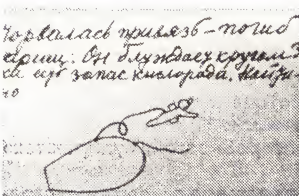 Чорвалась привязь – погиб
Он блуждает кругом
ка есть запас кислорода. Найди
но